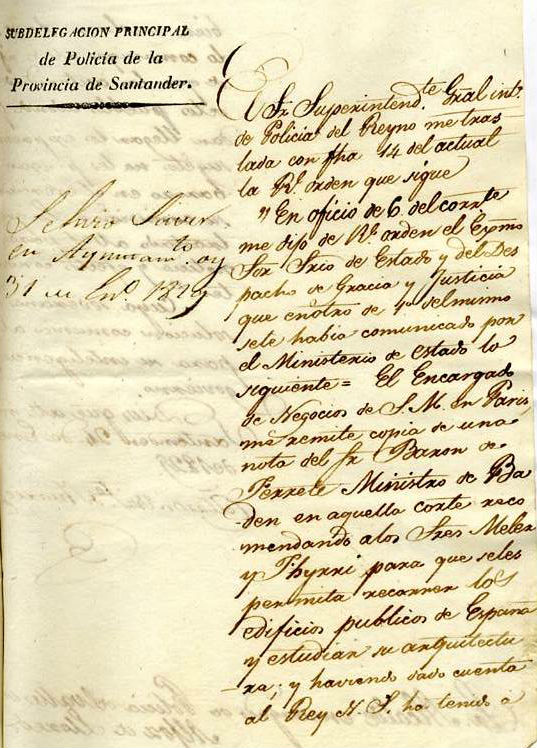 SUBDELEGACION PRINCIPAL
de Policía de la
Provincia de Santander.
Se hizo
en Ayuntam.to oy
31 de En.o 1829
El Sr. Superintend.te Gral int.o
de Policia del Reyno me tras
lada con fha 14 del actual
la R.l orden que sigue
"En oficio de 6 del corrte
me dijo de R.l orden el Exmo
Sor Srio de Estado y del Des
pacho de Gracia y Justicia
que en otro de 1º del mismo
se le habia comunicado por
el Ministerio de Estado lo
siguiente = El Encargado
de Negocios de S. M. en Paris,
me remite copia de una
nota del Sr Baron de
Ferrete Ministro de Ba
den en aquella corte reco
mendando a los Sres Meler
y Thyrri para que se les
permita recorrer los
edificios publicos de España
y estudiar su arquitectu
ra; y haviendo dado cuenta
al Rey N. S. ha tenido a